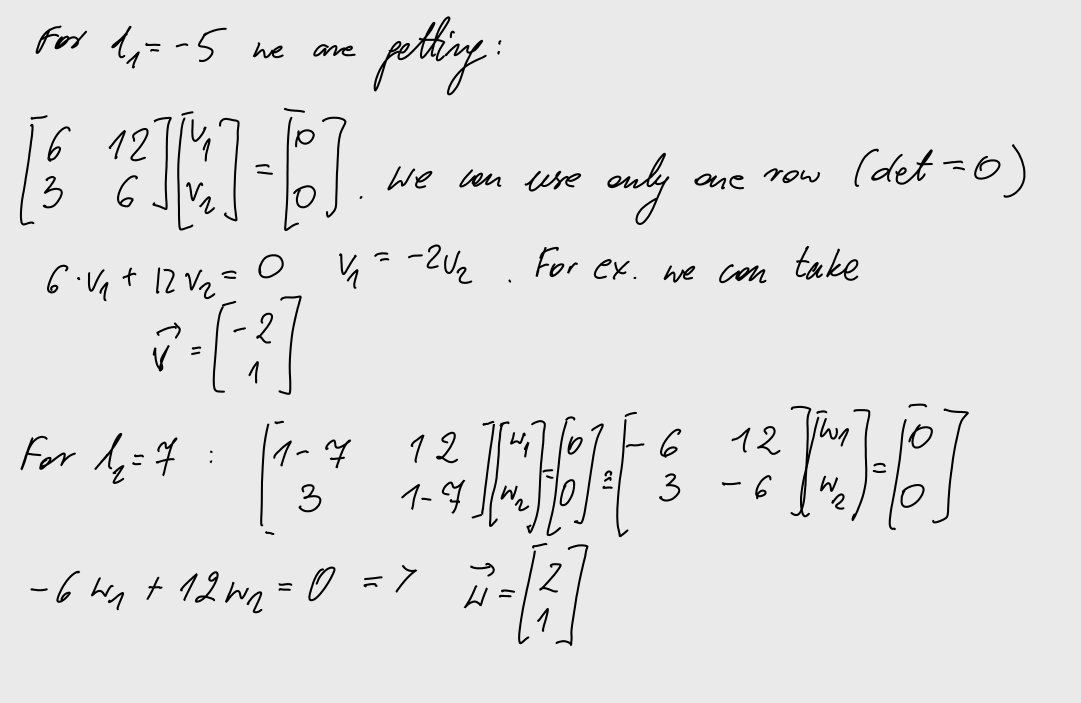 For λ₁ = -5 we are getting:
[6 12; 3 6] [v₁; v₂] = [0; 0] . We can use only one row (det = 0)
6·v₁ + 12v₂ = 0 v₁ = -2v₂ . For ex. we can take
v⃗ = [-2; 1]
For λ₂ = 7 : [1-7 12; 3 1-7] [w₁; w₂] = [0; 0] = [-6 12; 3 -6] [w₁; w₂] = [0; 0]
-6w₁ + 12w₂ = 0 => w⃗ = [2; 1]